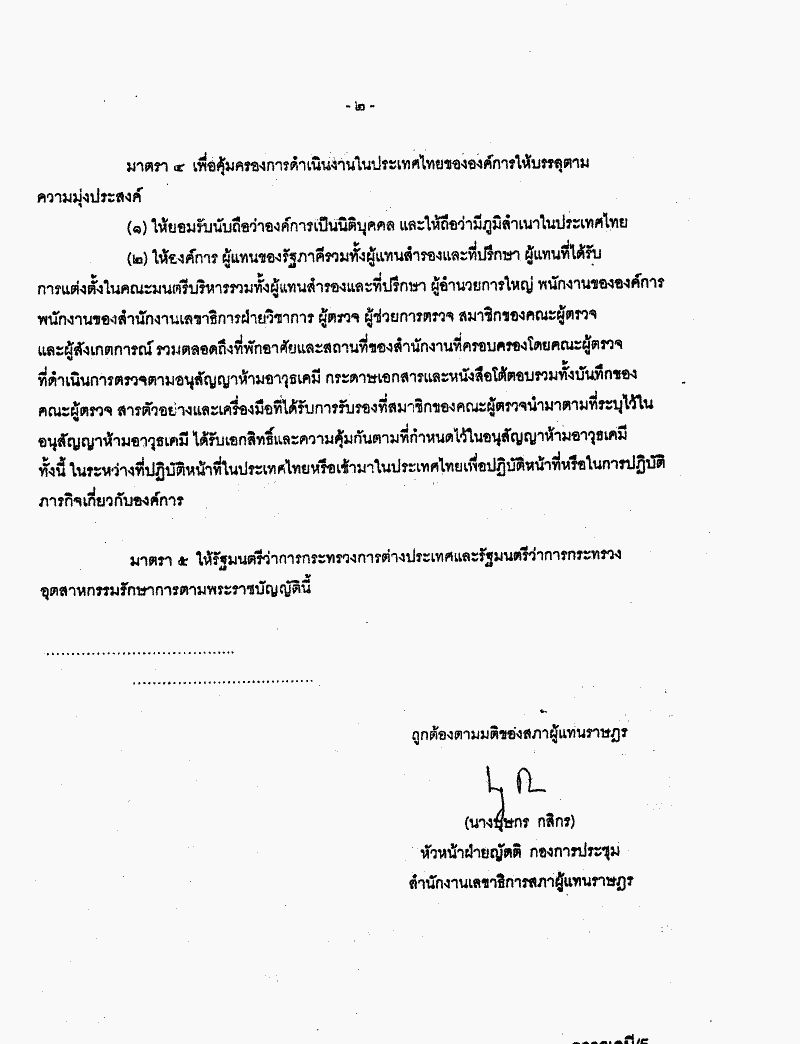 - ๒ -
มาตรา ๔ เพื่อคุ้มครองการดำเนินงานในประเทศไทยขององค์การให้บรรลุตาม
ความมุ่งประสงค์
(๑) ให้ยอมรับนับถือว่าองค์การเป็นนิติบุคคล และให้ถือว่ามีภูมิลำเนาในประเทศไทย
(๒) ให้องค์การ ผู้แทนของรัฐภาคีรวมทั้งผู้แทนสำรองและที่ปรึกษา ผู้แทนที่ได้รับ
การแต่งตั้งในคณะมนตรีบริหารรวมทั้งผู้แทนสำรองและที่ปรึกษา ผู้อำนวยการใหญ่ พนักงานขององค์การ
พนักงานของสำนักงานเลขาธิการฝ่ายวิชาการ ผู้ตรวจ ผู้ช่วยการตรวจ สมาชิกของคณะผู้ตรวจ
และผู้สังเกตการณ์ รวมตลอดถึงที่พักอาศัยและสถานที่ของสำนักงานที่ครอบครองโดยคณะผู้ตรวจ
ที่ดำเนินการตรวจตามอนุสัญญาห้ามอาวุธเคมี กระดาษเอกสารและหนังสือโต้ตอบรวมทั้งบันทึกของ
คณะผู้ตรวจ สารตัวอย่างและเครื่องมือที่ได้รับการรับรองที่สมาชิกของคณะผู้ตรวจนำมาตามที่ระบุไว้ใน
อนุสัญญาห้ามอาวุธเคมี ได้รับเอกสิทธิ์และความคุ้มกันตามที่กำหนดไว้ในอนุสัญญาห้ามอาวุธเคมี
ทั้งนี้ ในระหว่างที่ปฏิบัติหน้าที่ในประเทศไทยหรือเข้ามาในประเทศไทยเพื่อปฏิบัติหน้าที่หรือในการปฏิบัติ
ภารกิจเกี่ยวกับองค์การ
มาตรา ๕ ให้รัฐมนตรีว่าการกระทรวงการต่างประเทศและรัฐมนตรีว่าการกระทรวง
อุตสาหกรรมรักษาการตามพระราชบัญญัตินี้
.....................................
....................................
ถูกต้องตามมติของสภาผู้แทนราษฎร
(นางบุษกร กสิกร)
หัวหน้าฝ่ายญัตติ กองการประชุม
สำนักงานเลขาธิการสภาผู้แทนราษฎร